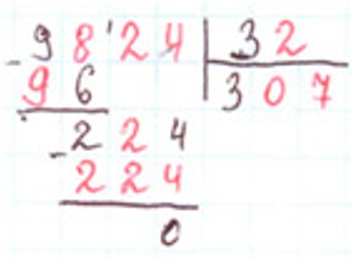 -98'24 | 32
96 307
-224
224
0